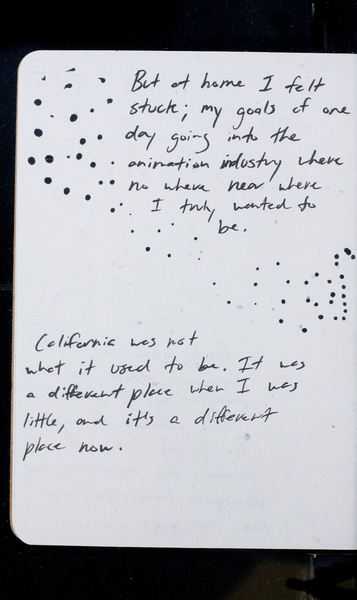 But at home I felt
stuck; my goals of one
day going into the
animation industry where
no where near where
I truly wanted to
be.
California was not
what it used to be. It was
a different place when I was
little, and it's a different
place now.